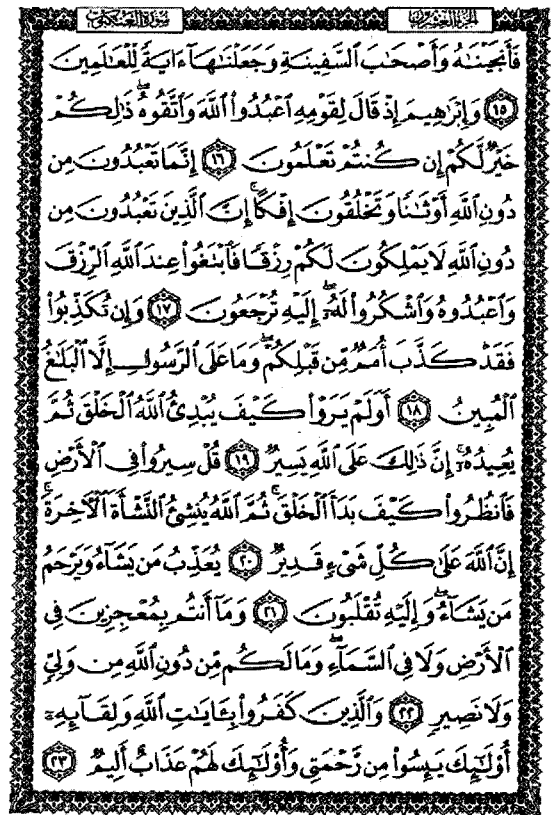 سُورَةُ العَنكَبُوتِ
الجُزءُ العِشرُونَ
فَأَنجَيْنَٰهُ وَأَصْحَٰبَ ٱلسَّفِينَةِ وَجَعَلْنَٰهَآ ءَايَةً لِّلْعَٰلَمِينَ
﴿١٥﴾ وَإِبْرَٰهِيمَ إِذْ قَالَ لِقَوْمِهِ ٱعْبُدُوا۟ ٱللَّهَ وَٱتَّقُوهُ ۖ ذَٰلِكُمْ
خَيْرٌ لَّكُمْ إِن كُنتُمْ تَعْلَمُونَ ﴿١٦﴾ إِنَّمَا تَعْبُدُونَ مِن
دُونِ ٱللَّهِ أَوْثَٰنًا وَتَخْلُقُونَ إِفْكًا ۚ إِنَّ ٱلَّذِينَ تَعْبُدُونَ مِن
دُونِ ٱللَّهِ لَا يَمْلِكُونَ لَكُمْ رِزْقًا فَٱبْتَغُوا۟ عِندَ ٱللَّهِ ٱلرِّزْقَ
وَٱعْبُدُوهُ وَٱشْكُرُوا۟ لَهُۥٓ ۖ إِلَيْهِ تُرْجَعُونَ ﴿١٧﴾ وَإِن تُكَذِّبُوا۟
فَقَدْ كَذَّبَ أُمَمٌ مِّن قَبْلِكُمْ ۖ وَمَا عَلَى ٱلرَّسُولِ إِلَّا ٱلْبَلَٰغُ
ٱلْمُبِينُ ﴿١٨﴾ أَوَلَمْ يَرَوْا۟ كَيْفَ يُبْدِئُ ٱللَّهُ ٱلْخَلْقَ ثُمَّ
يُعِيدُهُۥٓ ۚ إِنَّ ذَٰلِكَ عَلَى ٱللَّهِ يَسِيرٌ ﴿١٩﴾ قُلْ سِيرُوا۟ فِى ٱلْأَرْضِ
فَٱنظُرُوا۟ كَيْفَ بَدَأَ ٱلْخَلْقَ ۚ ثُمَّ ٱللَّهُ يُنشِئُ ٱلنَّشْأَةَ ٱلْءَاخِرَةَ ۚ
إِنَّ ٱللَّهَ عَلَىٰ كُلِّ شَىْءٍ قَدِيرٌ ﴿٢٠﴾ يُعَذِّبُ مَن يَشَآءُ وَيَرْحَمُ
مَن يَشَآءُ ۖ وَإِلَيْهِ تُقْلَبُونَ ﴿٢١﴾ وَمَآ أَنتُم بِمُعْجِزِينَ فِى
ٱلْأَرْضِ وَلَا فِى ٱلسَّمَآءِ ۖ وَمَا لَكُم مِّن دُونِ ٱللَّهِ مِن وَلِىٍّ
وَلَا نَصِيرٍ ﴿٢٢﴾ وَٱلَّذِينَ كَفَرُوا۟ بِـَٔايَٰتِ ٱللَّهِ وَلِقَآئِهِۦٓ
أُو۟لَٰٓئِكَ يَئِسُوا۟ مِن رَّحْمَتِى وَأُو۟لَٰٓئِكَ لَهُمْ عَذَابٌ أَلِيمٌ ﴿٢٣﴾